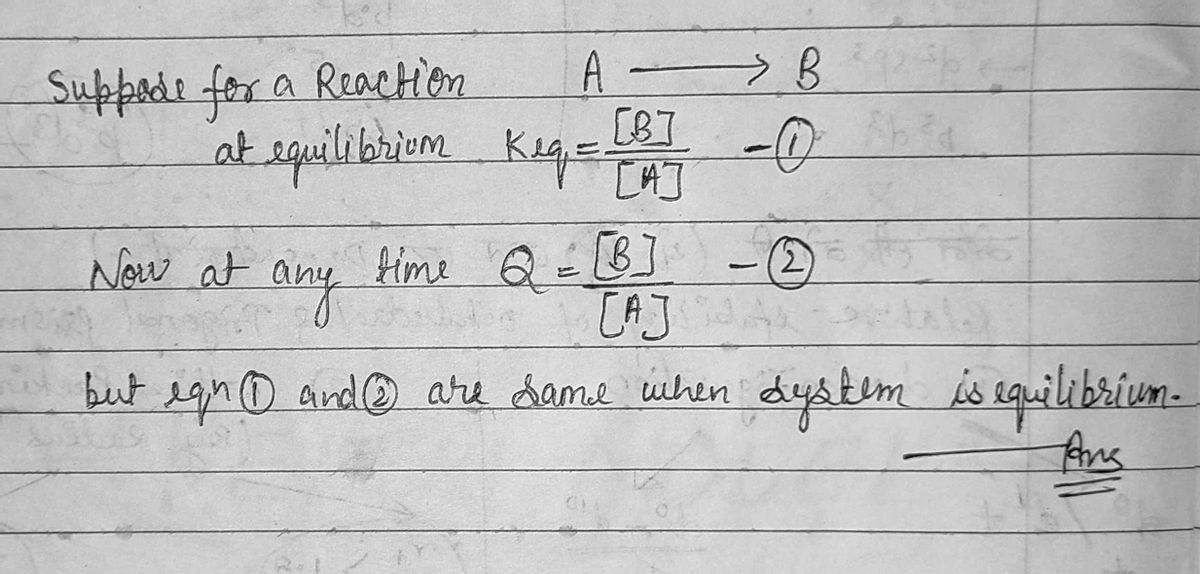 Suppose for a Reaction A ⟶ B
at equilibrium Keq = [B] / [A] - ①
Now at any time Q = [B] / [A] - ②
but eqn ① and ② are same when system is equilibrium.
Ans